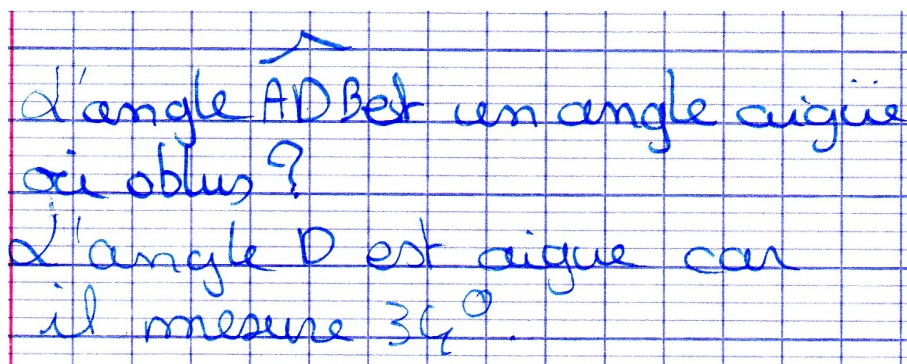 L'angle ADB est un angle aigüe
ou obtus ?
L'angle D est aigue car
il mesure 34°.